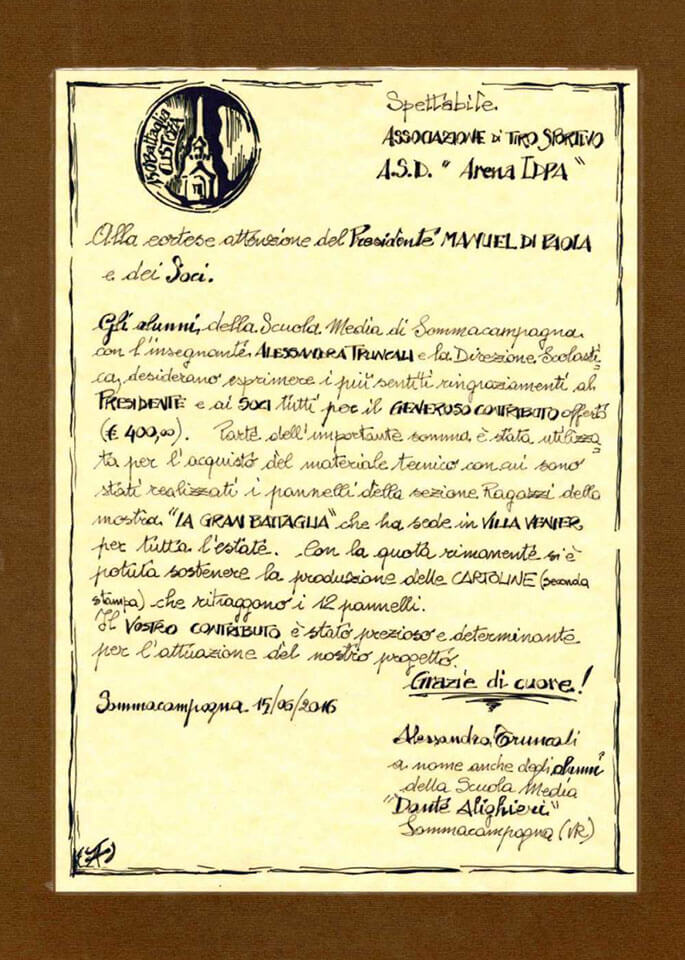 150 Battaglia
CUSTOZA
Spettabile
ASSOCIAZIONE DI TIRO SPORTIVO
A.S.D. " Arena IDPA "
Alla cortese attenzione del Presidente MANUEL DI PAOLA
e dei Soci.
Gli alunni, della Scuola Media di Sommacampagna
con l'insegnante ALESSANDRA TRUNCALI e la Direzione Scolasti=
ca, desiderano esprimere i più sentiti ringraziamenti al
PRESIDENTE e ai SOCI tutti per il GENEROSO CONTRIBUTO offerto
(€ 400,00). Parte dell'importante somma è stata utilizza=
ta per l'acquisto del materiale tecnico con cui sono
stati realizzati i pannelli della sezione Ragazzi della
mostra "LA GRAN BATTAGLIA" che ha sede in VILLA VENIER,
per tutta l'estate. Con la quota rimanente si è
potuta sostenere la produzione delle CARTOLINE (seconda
stampa) che ritraggono i 12 pannelli.
Il VOSTRO CONTRIBUTO è stato prezioso e determinante
per l'attuazione del nostro progetto.
Grazie di cuore!
Sommacampagna 15/06/2016
Alessandra Truncali
a nome anche degli alunni
della Scuola Media
"Dante Alighieri"
Sommacampagna (VR)